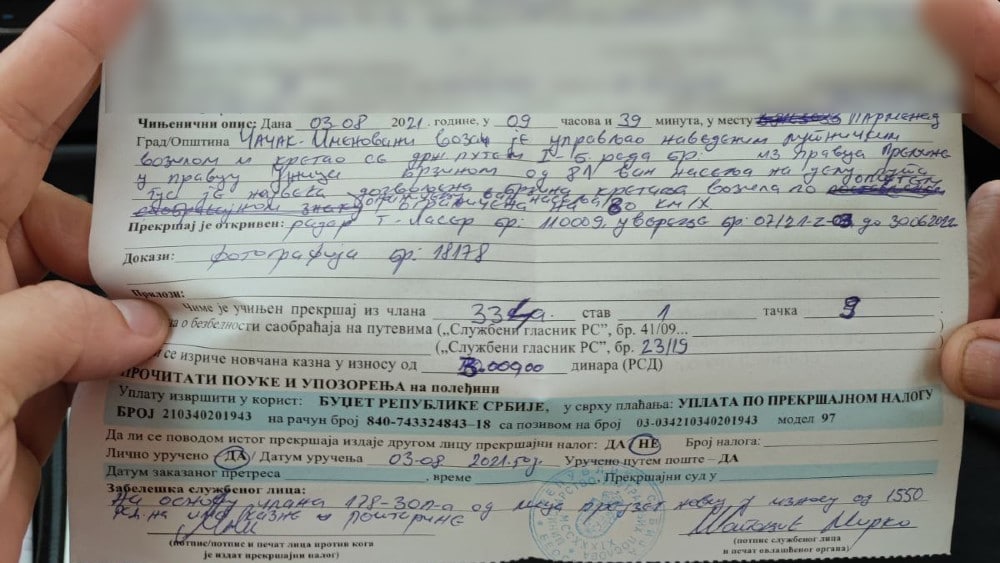 Чињенични опис: Дана 03-08 2021. године, у 09 часова и 39 минута, у месту
Град/Општина ЧАЧАК-Именовани возач је управљао наведеним путничким
возилом и кретао се држ. путем I-Б реда бр: из правца
у правцу брзином од 81 ван насеља на
где је највећа дозвољена брзина кретања возила по
80 км/х
Прекршај је откривен: радар Т-Ласер бр: 110009, уверења бр: 07/21-2- до 30.06.2022
Докази: фотографија бр: 18178
Прилози:
Чиме је учињен прекршај из члана став 1 тачка 9
о безбедности саобраћаја на путевима („Службени гласник РС”, бр. 41/09... )
(„Службени гласник РС”, бр. 23/19 )
се изриче новчана казна у износу од динара (РСД)
ПРОЧИТАТИ ПОУКЕ И УПОЗОРЕЊА на полеђини
Уплату извршити у корист: БУЏЕТ РЕПУБЛИКЕ СРБИЈЕ, у сврху плаћања: УПЛАТА ПО ПРЕКРШАЈНОМ НАЛОГУ
БРОЈ 210340201943 на рачун број 840-743324843-18 са позивом на број 03-034210340201943 модел 97
Да ли се поводом истог прекршаја издаје другом лицу прекршајни налог: ДА НЕ Број налога:
Лично уручено ДА / Датум уручења 03-08 2021. год. Уручено путем поште – ДА
Датум заказаног претреса , време Прекршајни суд у
Забелешка службеног лица:
На основу члана 178-ЗОП-а од лица новац у износу од 1550
рсд. на име казне
Мирко
(потпис/потпис и печат лица против кога
је издат прекршајни налог)
(потпис службеног лица
и печат овлашћеног органа)